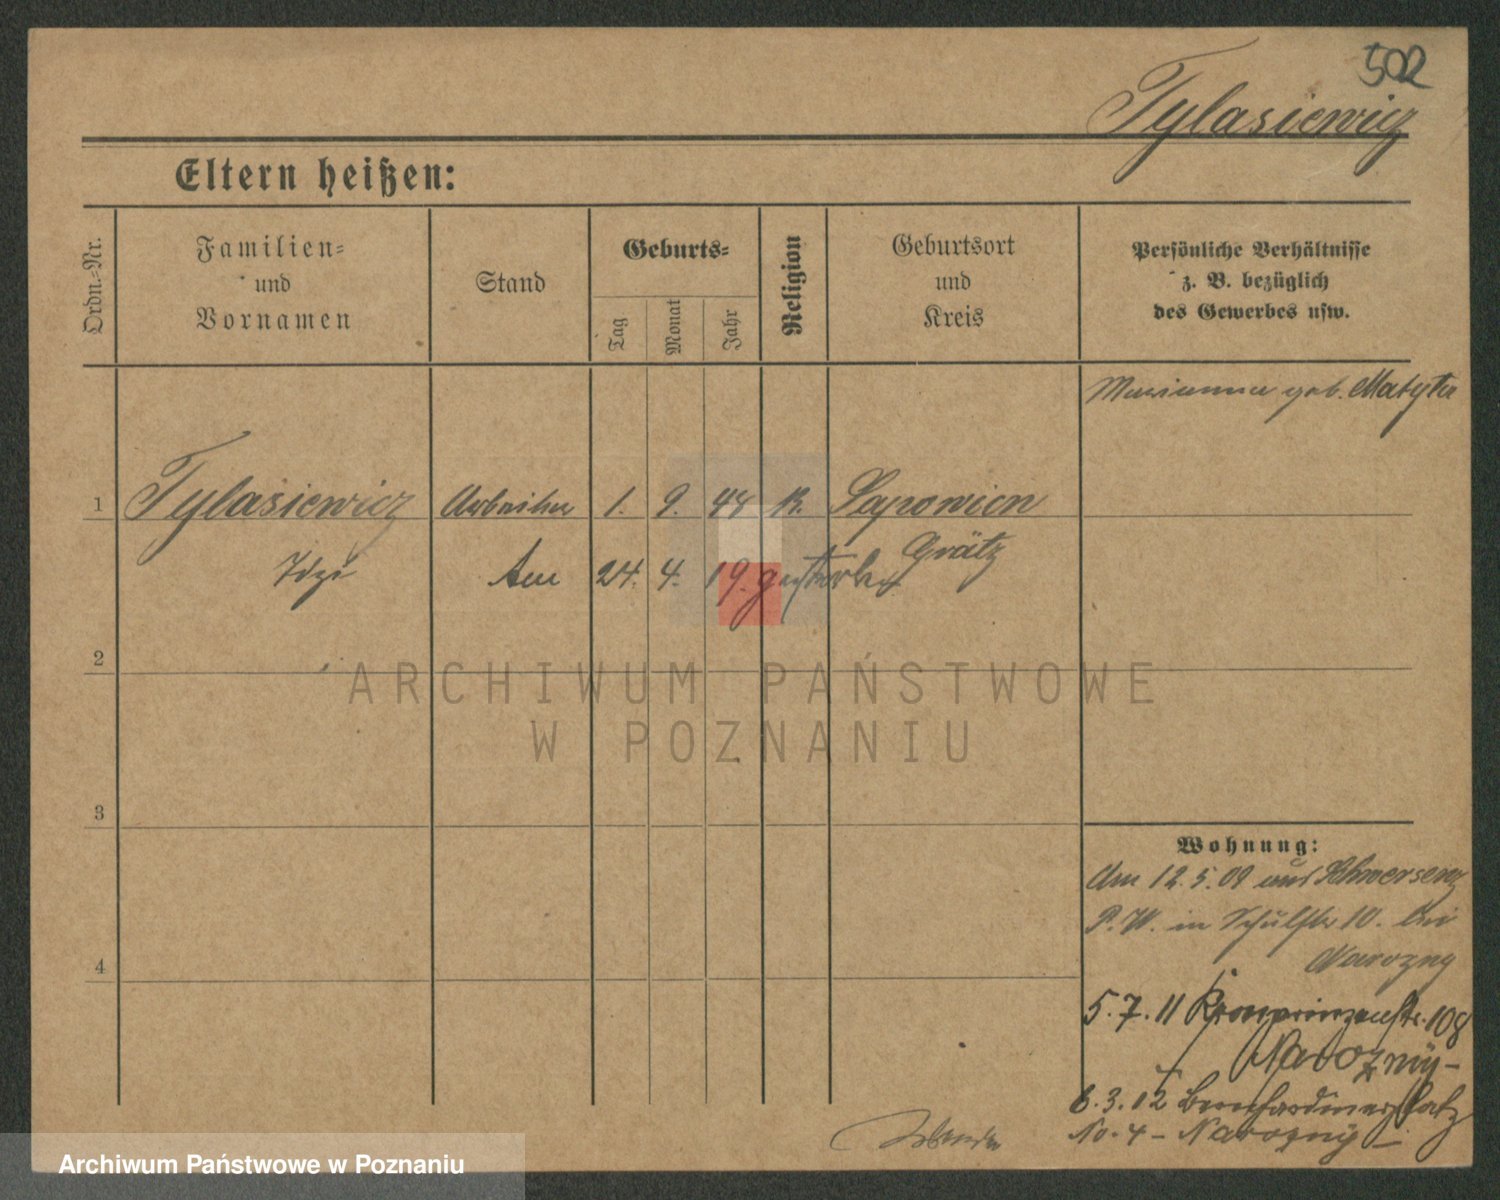 502
Tylasiewicz
Eltern heißen:
Ordn.-Nr.
Familien-
und
Vornamen
Stand
Geburts-
Tag
Monat
Jahr
Religion
Geburtsort
und
Kreis
Persönliche Verhältnisse
z. B. bezüglich
des Gewerbes usw.
Marianna geb. Matyla
1 Tylasiewicz Arbeiter 1. 9. 44 K. Sapowien
Grätz
Idzi Am 24. 4. 19. gestorben
2
3
4
Wohnung:
Am 12.5.09 aus Schwersenz
P.W. in Schulstr 10. bei
Narozny
5.7.11 Kronprinzenstr. 108
Narozny-
6.3.12 Bernhardinerplatz
No. 4 - Narozny -
ARCHIWUM PAŃSTWOWE
W POZNANIU
Archiwum Państwowe w Poznaniu